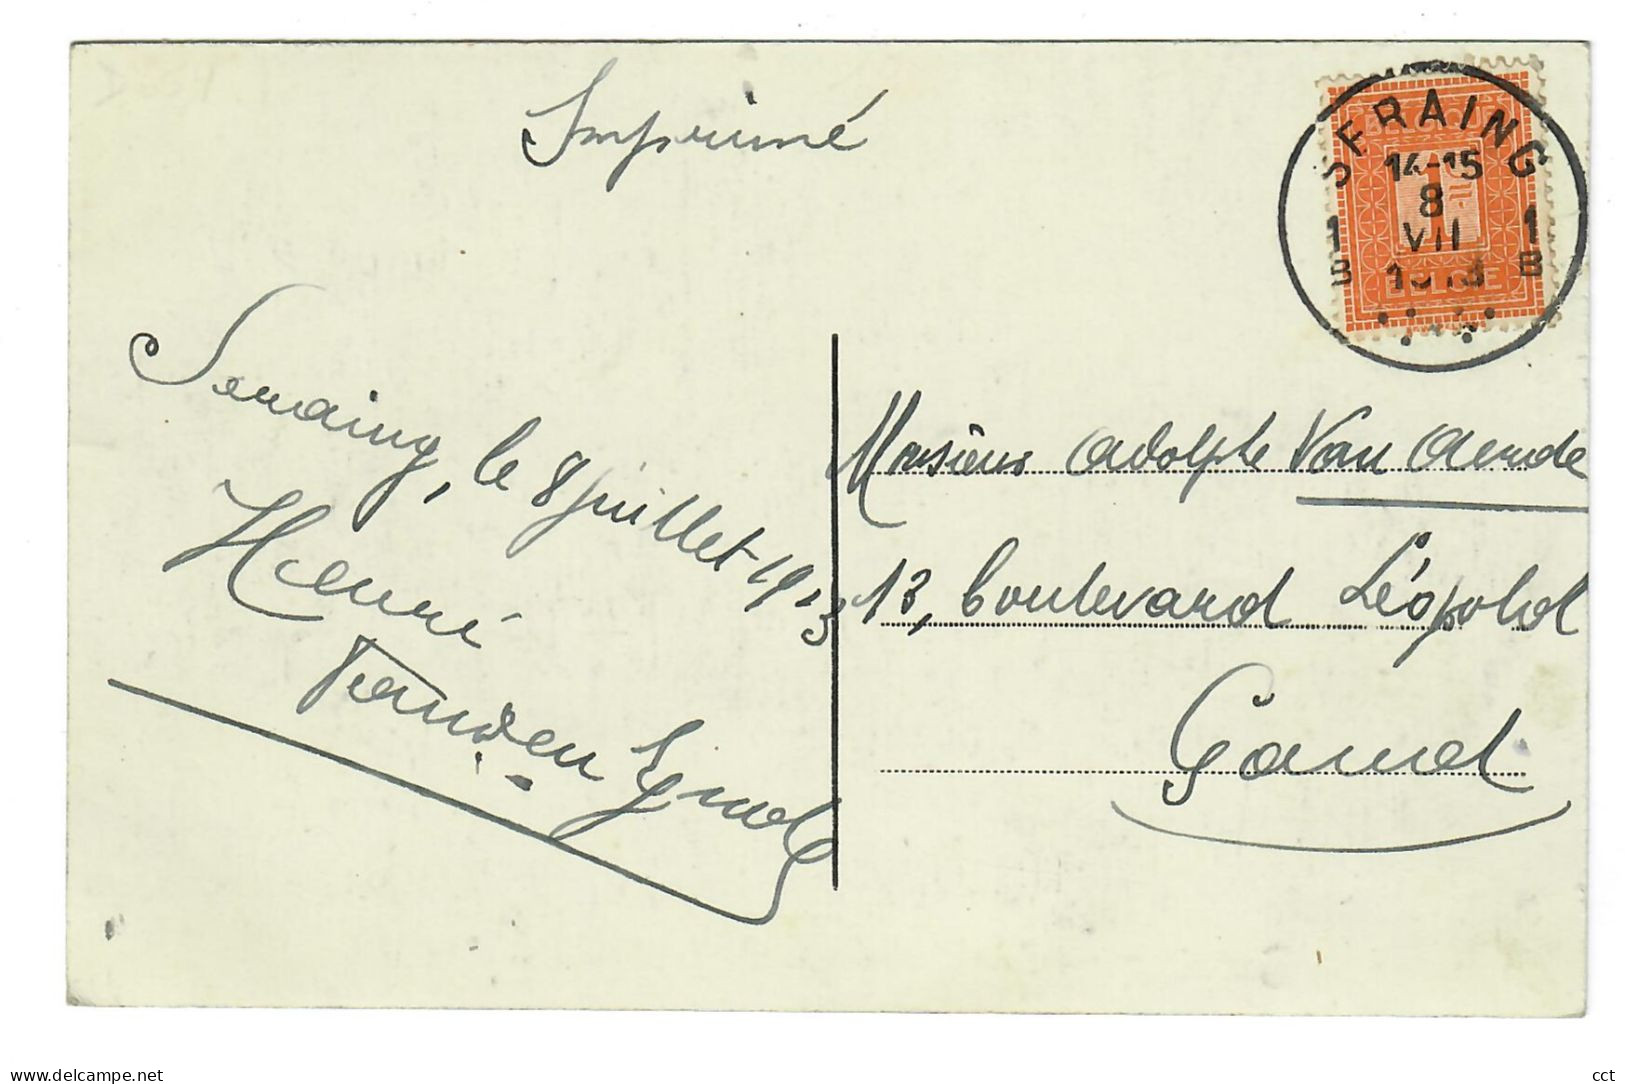 Imprimé
SERAING
14-15
8
VII
1913
1 1
B B
BELGIQUE
1
BELGIE
Seraing, le 8 juillet 1913
Henri
Vanden
Monsieur Adolphe Van Aerde
13, boulevard Léopold
Gand
www.delcampe.net
cct